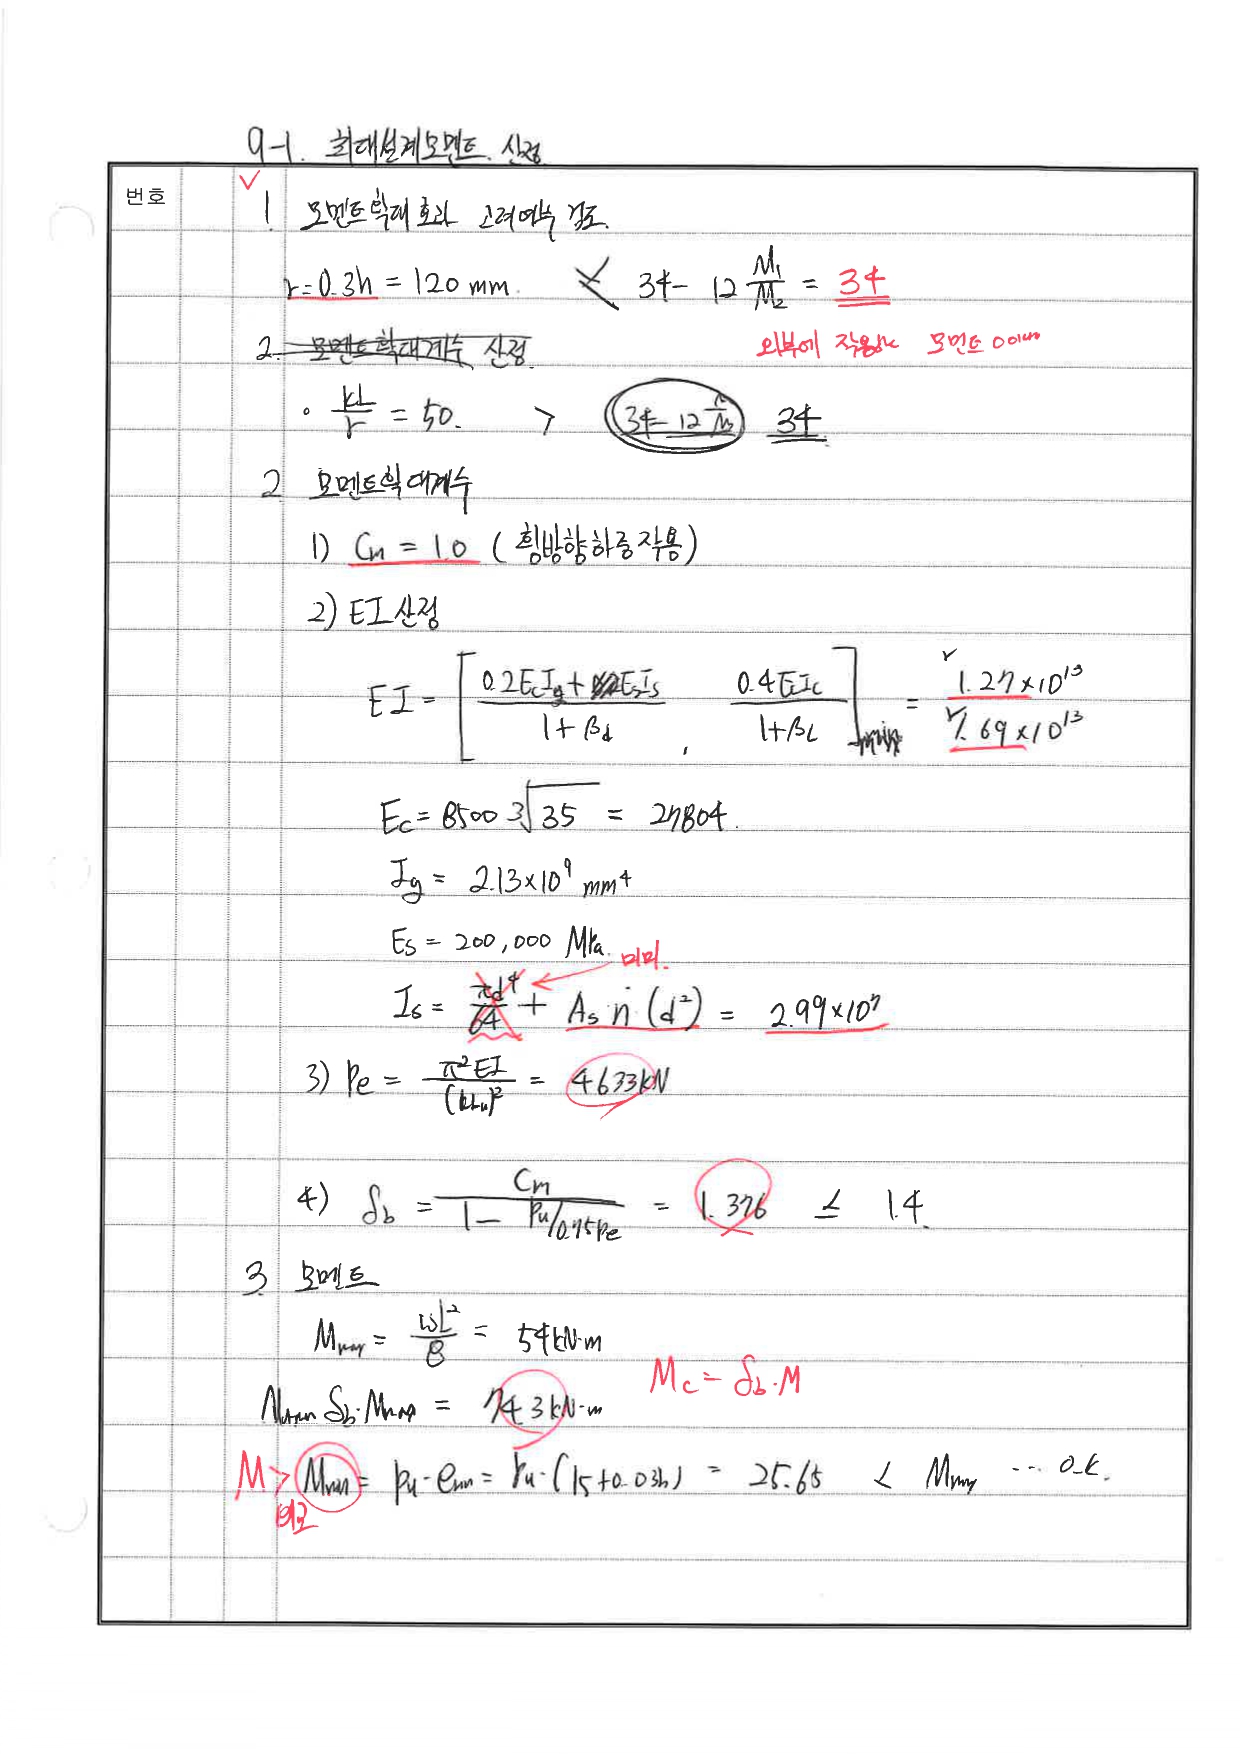 9-1. 최대설계모멘트 산정
번호
1 모멘트확대효과 고려여부 검토.
r=0.3h = 120 mm. ≮ 34- 12 M₁/M₂ = 34
외부에 작용하는 모멘트 0이므로
2. 모멘트확대계수 산정
• kL/r = 50. > 34-12 34
2 모멘트확대계수
1) Cm = 1.0 ( 횡방향하중작용)
2) EI 산정
EI = [ (0.2EcIg + EsIs)/(1+βd) , (0.4EcIc)/(1+βd) ]min = 1.27×10¹³
1.69×10¹³
Ec = 8500 ³√35 = 27804.
Ig = 2.13×10⁹ mm⁴
Es = 200,000 MPa.
미미.
Is = πd⁴/64 + As n (d²) = 2.99×10⁷
3) Pe = π²EI/(kLu)² = 4633kN
4) δb = Cm/(1 - Pu/0.75Pe) = 1.376 ≤ 1.4.
3 모멘트
Mmax = wL²/8 = 54kN·m
Mc = δb·M
δb·Mmax = 74.3kN·m
M > Mmin = Pu·emin = Pu·(15+0.03h) = 25.65 < Mmax ... O.K.
비교